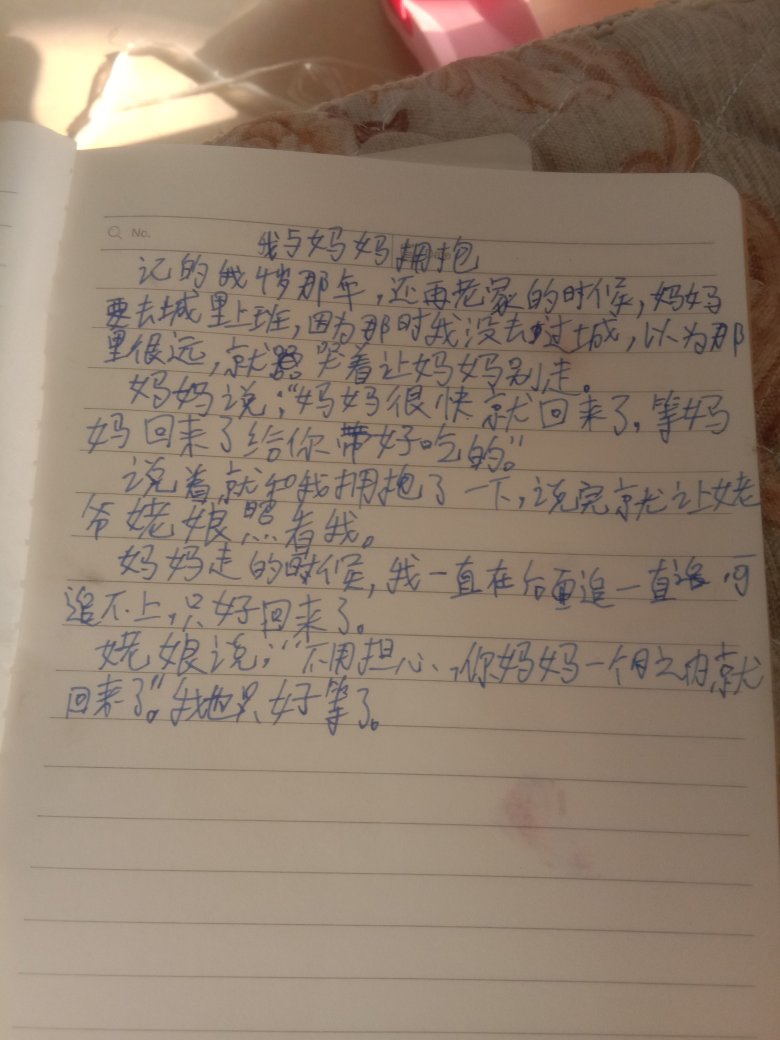 No.
我与妈妈拥抱
记的我4岁那年，还再老家的时候，妈妈
要去城里上班，因为那时我没去过城，以为那
里很远，就哭着让妈妈别走。
妈妈说：“妈妈很快就回来了，等妈
妈回来了给你带好吃的。”
说着就和我拥抱了一下，说完就让姥
爷姥娘照着我。
妈妈走的时候，我一直在后面追一直追，可
追不上，只好回来了。
姥娘说：“不用担心，你妈妈一个月之内就
回来了”。我也只好等了。